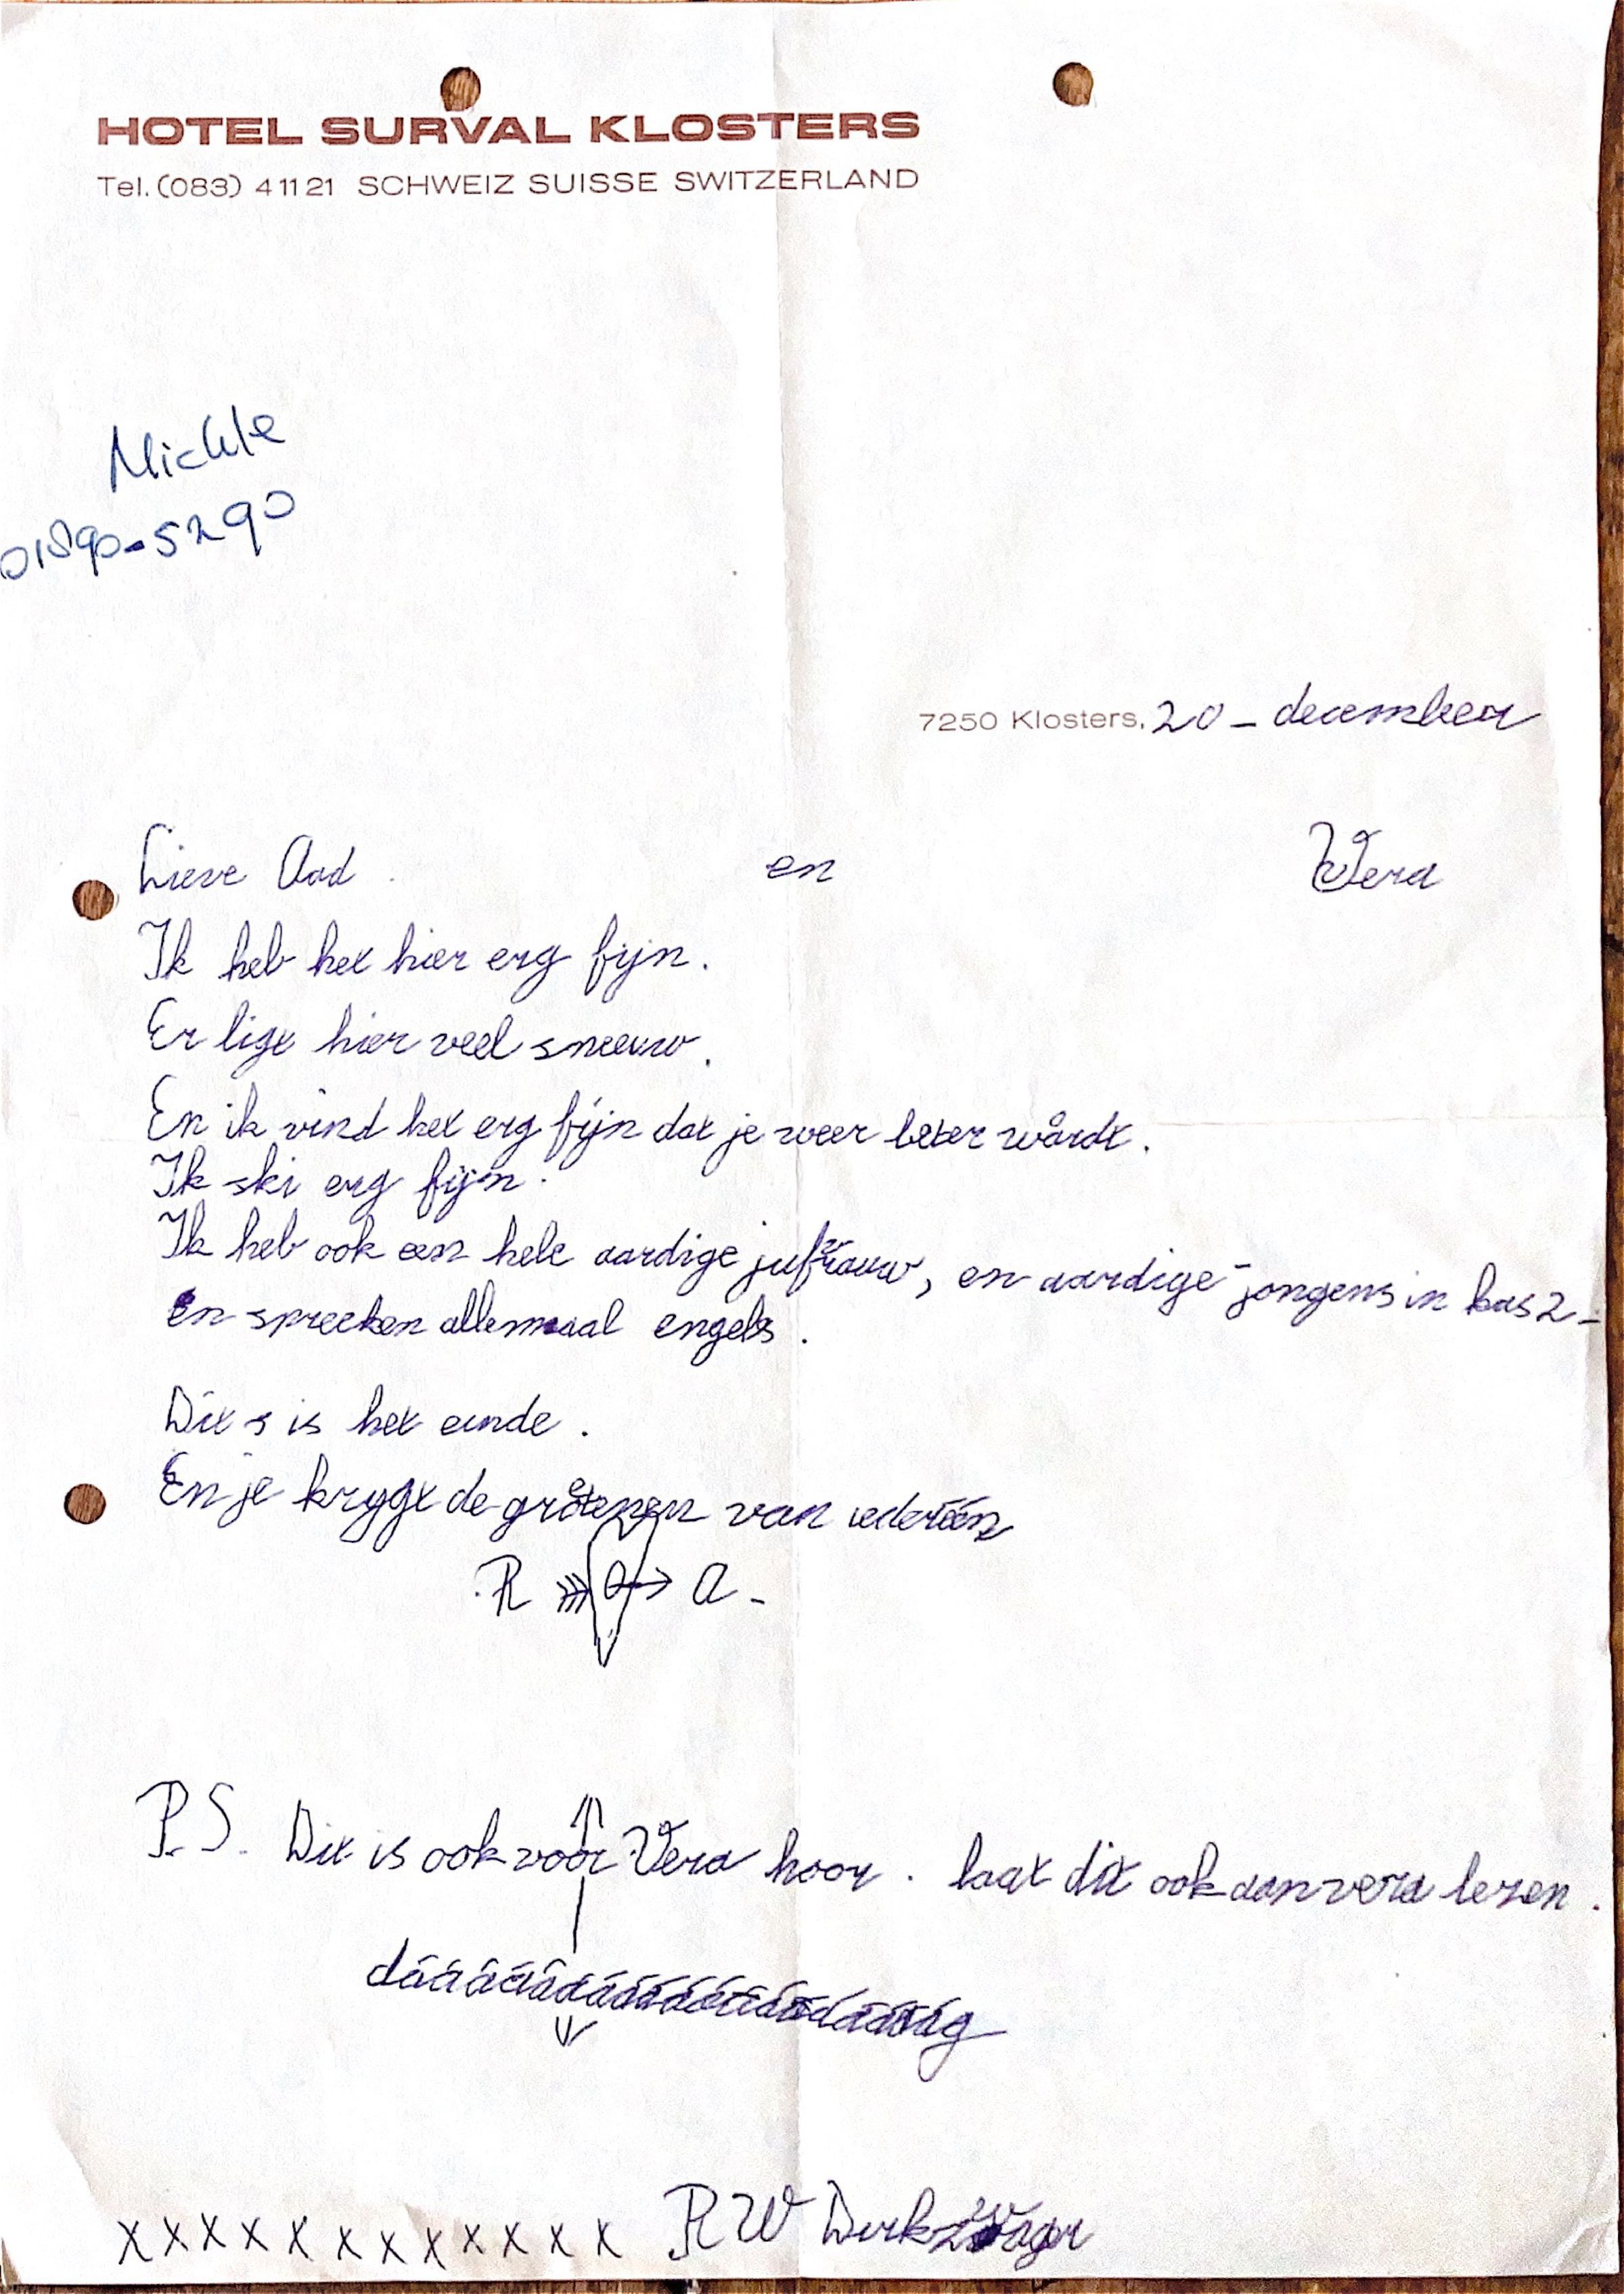 HOTEL SURVAL KLOSTERS
Tel. (083) 4 11 21 SCHWEIZ SUISSE SWITZERLAND
01890-5290
7250 Klosters, 20 - december
Lieve Aad en Vera
Ik heb het hier erg fijn.
Er ligt hier veel sneeuw.
En ik vind het erg fijn dat je weer beter wordt.
Ik ski erg fijn.
Ik heb ook een hele aardige jufrouw, en aardige jongens in kas 2-
En spreeken allemaal engels.
Dit s is het einde.
En je krygt de groetenen van iederéén
R O A -
P.S. Dit is ook voor Vera hoor. laat dit ook aan vera lezen.
xxxxxxxxxxxx RW Derkzwager